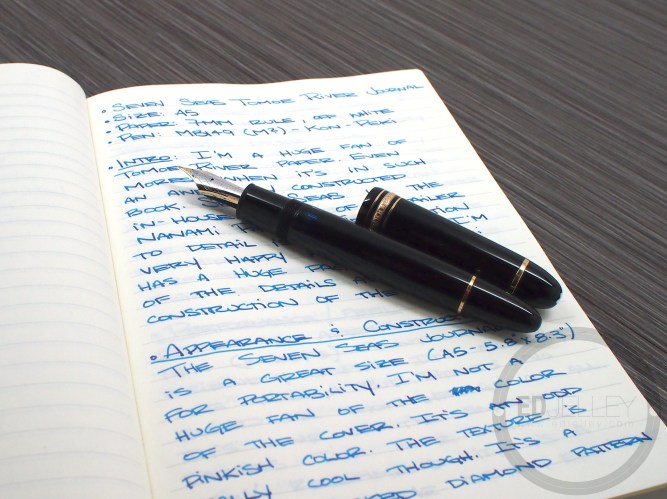 • SEVEN SEAS TOMOE RIVER JOURNAL
• SIZE: A5
• PAPER: 7MM RULE, OFF WHITE
• PEN: MB149 (M3) - KON-PEKI
• INTRO: I'M A HUGE FAN OF
TOMOE RIVER PAPER. EVEN
MORE WHEN IT'S IN SUCH
AN CONSTRUCTED
BOOK. SEAS THE
IN-HOUSE OF
NANAMI I'M
TO DETAIL
VERY HAPPY
HAS A HUGE
OF THE DETAILS
CONSTRUCTION OF THE
• APPEARANCE & CONSTRUCTION
THE SEVEN SEAS JOURNAL
IS A GREAT SIZE (A5 - 5.8" x 8.3")
FOR PORTABILITY. I'M NOT A
HUGE FAN OF THE COLOR
OF THE COVER. IT'S AN ODD
PINKISH COLOR. THE TEXTURE IS
COOL THOUGH. IT'S A
DIAMOND PATTERN
ED JELLEY